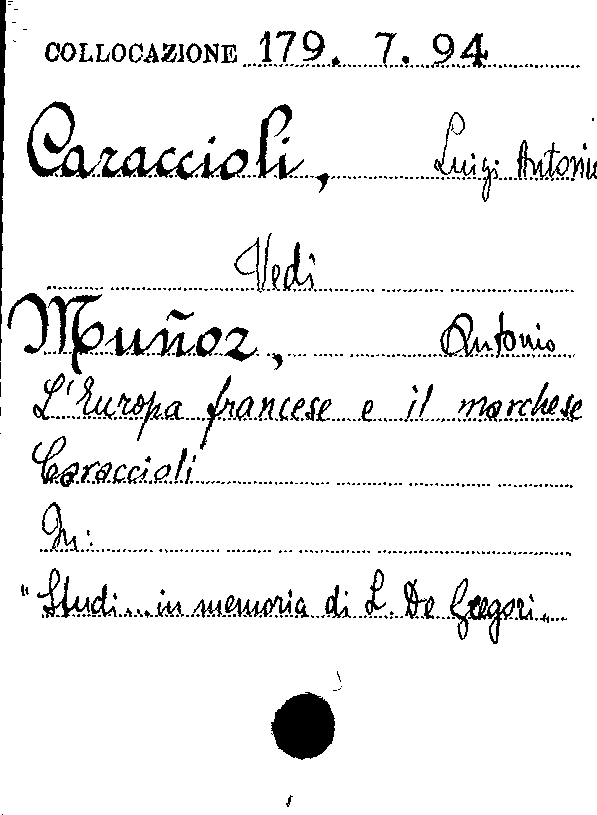 COLLOCAZIONE 179. 7. 94
Caraccioli, Luigi Antonio
Vedi
Muñoz, Antonio
L'Europa francese e il marchese
Caraccioli
In:
"Studi... in memoria di L. De Gregori"